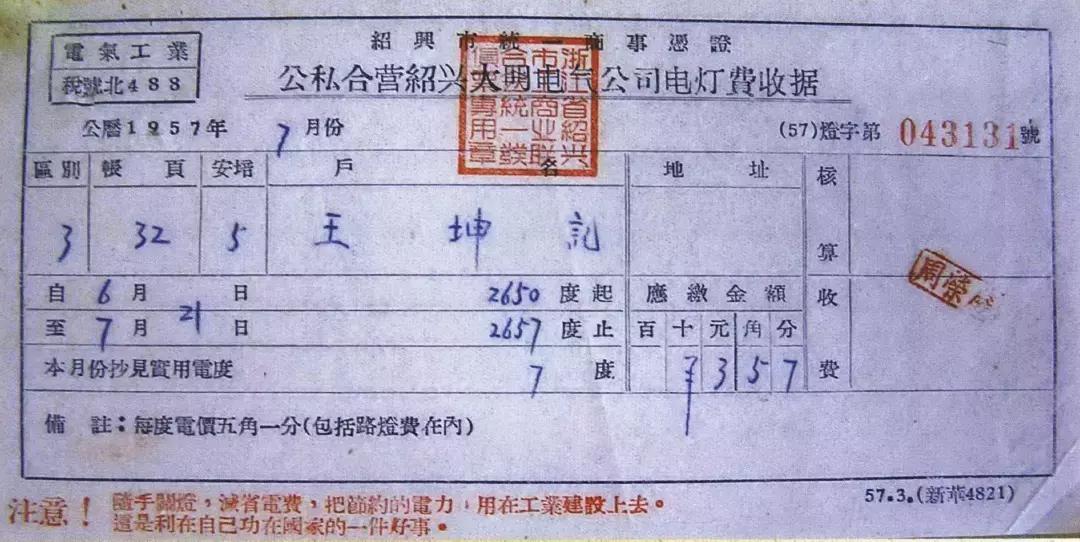 紹興市統一商事憑證
電氣工業
稅號北488
公私合营紹兴大明电气公司电灯費收据
浙江省紹興市商业聯合會統一發貨票專用章
公曆1957年 7月份
(57)燈字第 043131號
區別 帳頁 安培 戶名 地址 核算
3 32 5 王坤記
自6月21日 2650度起 應繳金額 收費
至7月21日 2657度止 百十元角分
本月份抄見實用電度 7度 ¥357
周榮
備註:每度電價五角一分(包括路燈費在內)
57.3.(新華4821)
注意!
隨手關燈,減省電費,把節約的電力,用在工業建設上去。
這是利在自己功在國家的一件好事。